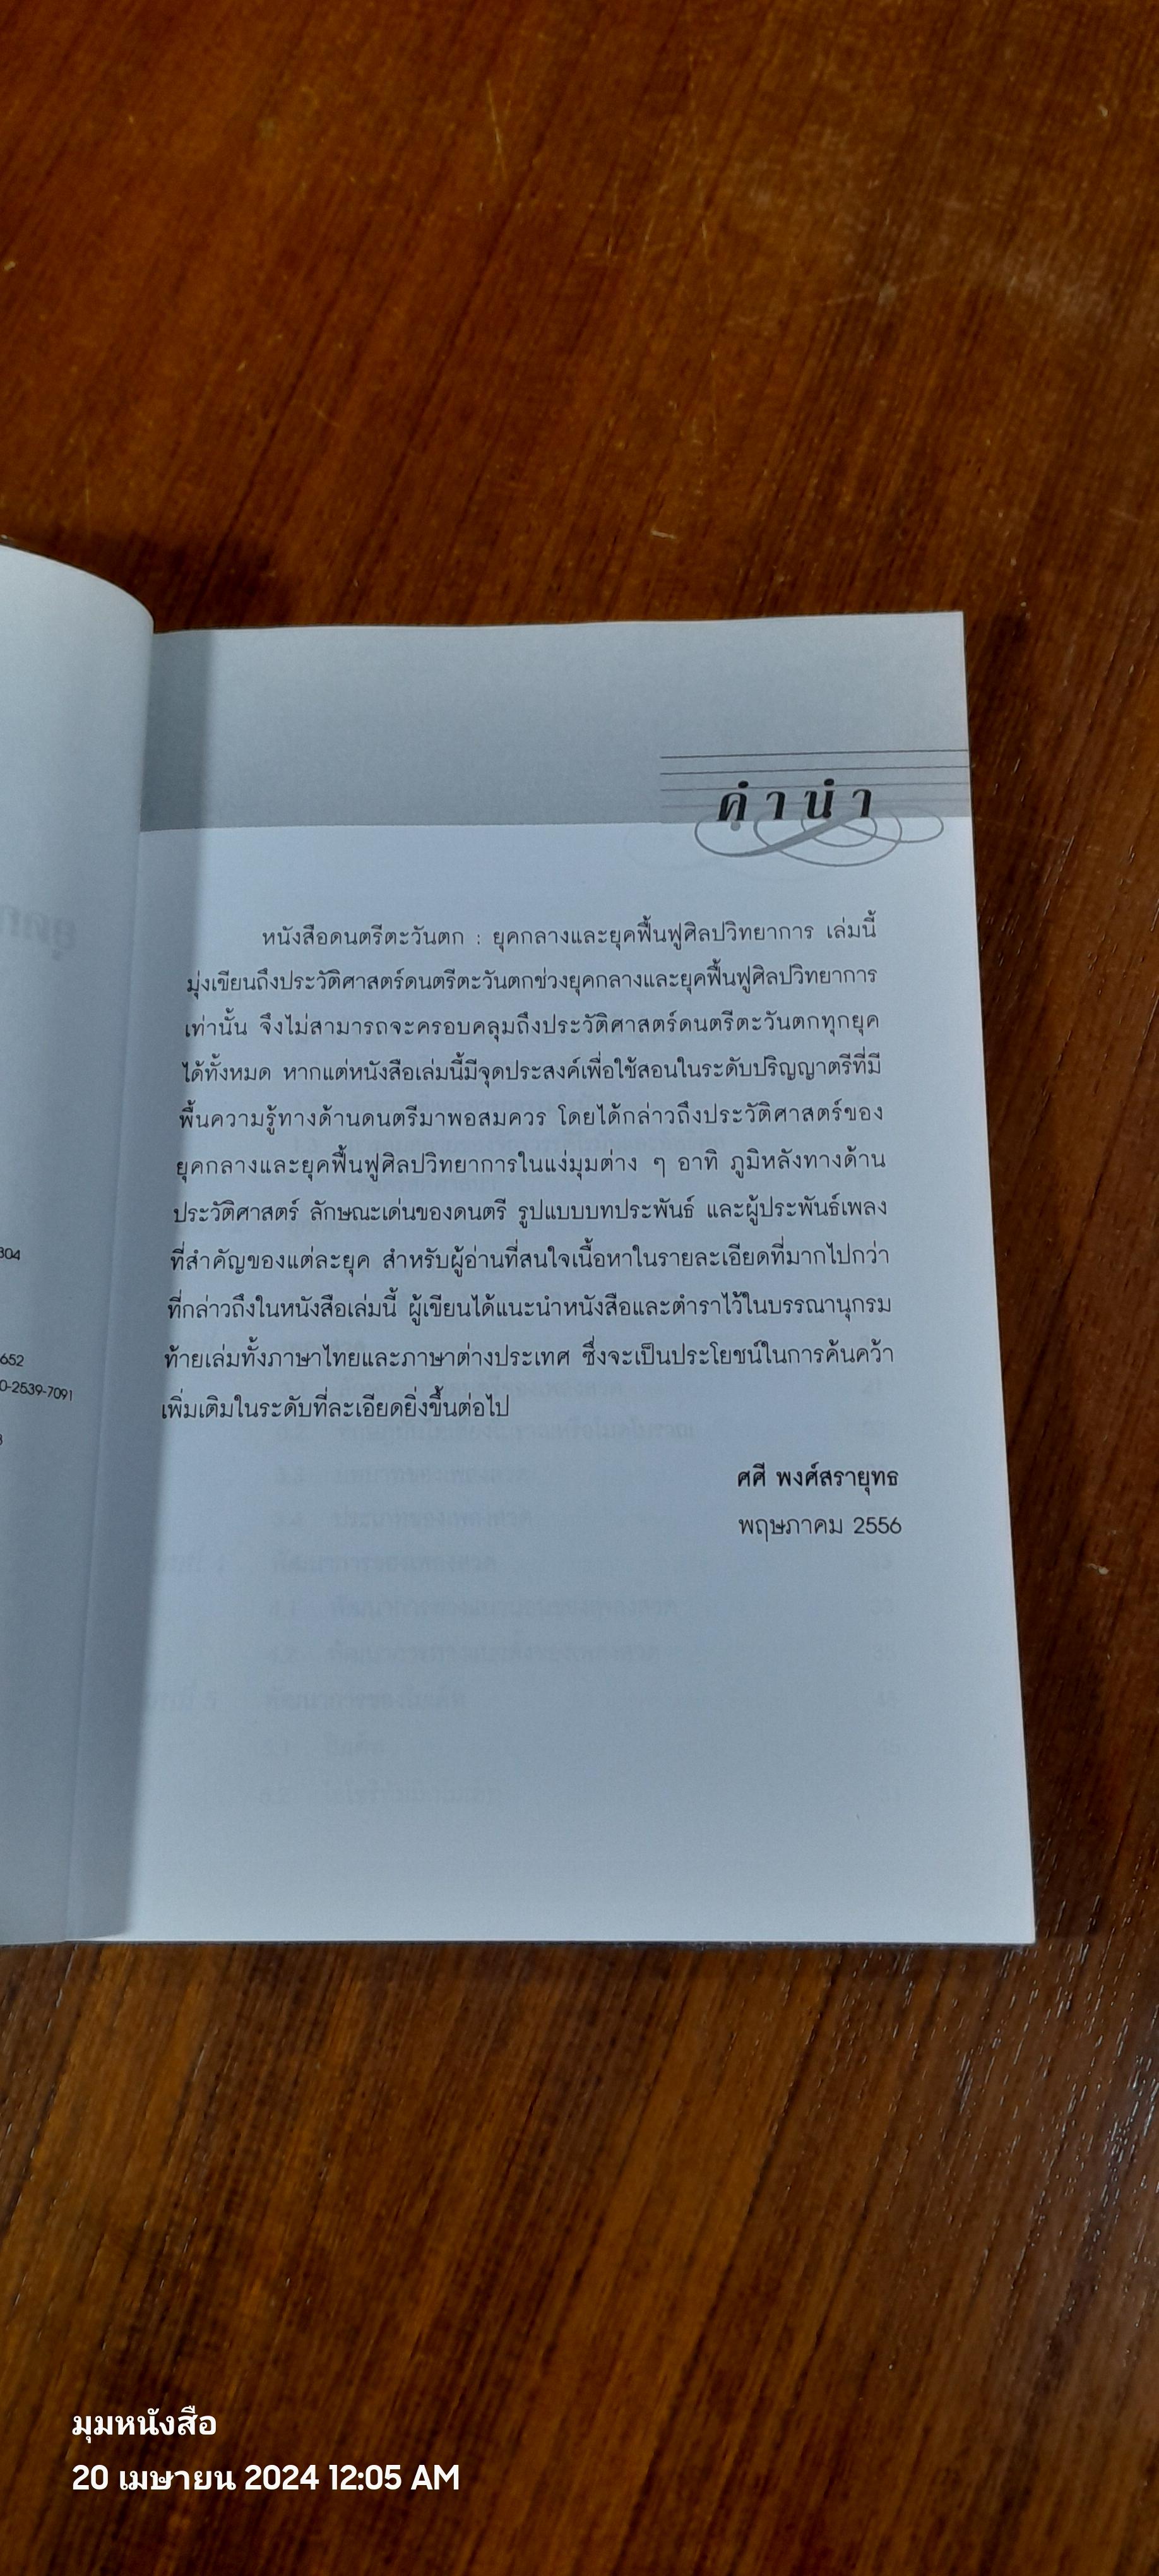 คำนำ
หนังสือดนตรีตะวันตก : ยุคกลางและยุคฟื้นฟูศิลปวิทยาการ เล่มนี้
มุ่งเขียนถึงประวัติศาสตร์ดนตรีตะวันตกช่วงยุคกลางและยุคฟื้นฟูศิลปวิทยาการ
เท่านั้น จึงไม่สามารถจะครอบคลุมถึงประวัติศาสตร์ดนตรีตะวันตกทุกยุค
ได้ทั้งหมด หากแต่หนังสือเล่มนี้มีจุดประสงค์เพื่อใช้สอนในระดับปริญญาตรีที่มี
พื้นความรู้ทางด้านดนตรีมาพอสมควร โดยได้กล่าวถึงประวัติศาสตร์ของ
ยุคกลางและยุคฟื้นฟูศิลปวิทยาการในแง่มุมต่าง ๆ อาทิ ภูมิหลังทางด้าน
ประวัติศาสตร์ ลักษณะเด่นของดนตรี รูปแบบบทประพันธ์ และผู้ประพันธ์เพลง
ที่สำคัญของแต่ละยุค สำหรับผู้อ่านที่สนใจเนื้อหาในรายละเอียดที่มากไปกว่า
ที่กล่าวถึงในหนังสือเล่มนี้ ผู้เขียนได้แนะนำหนังสือและตำราไว้ในบรรณานุกรม
ท้ายเล่มทั้งภาษาไทยและภาษาต่างประเทศ ซึ่งจะเป็นประโยชน์ในการค้นคว้า
เพิ่มเติมในระดับที่ละเอียดยิ่งขึ้นต่อไป
ศศี พงศ์สรายุทธ
พฤษภาคม 2556
304
652
0-2539-7091
มุมหนังสือ
20 เมษายน 2024 12:05 AM